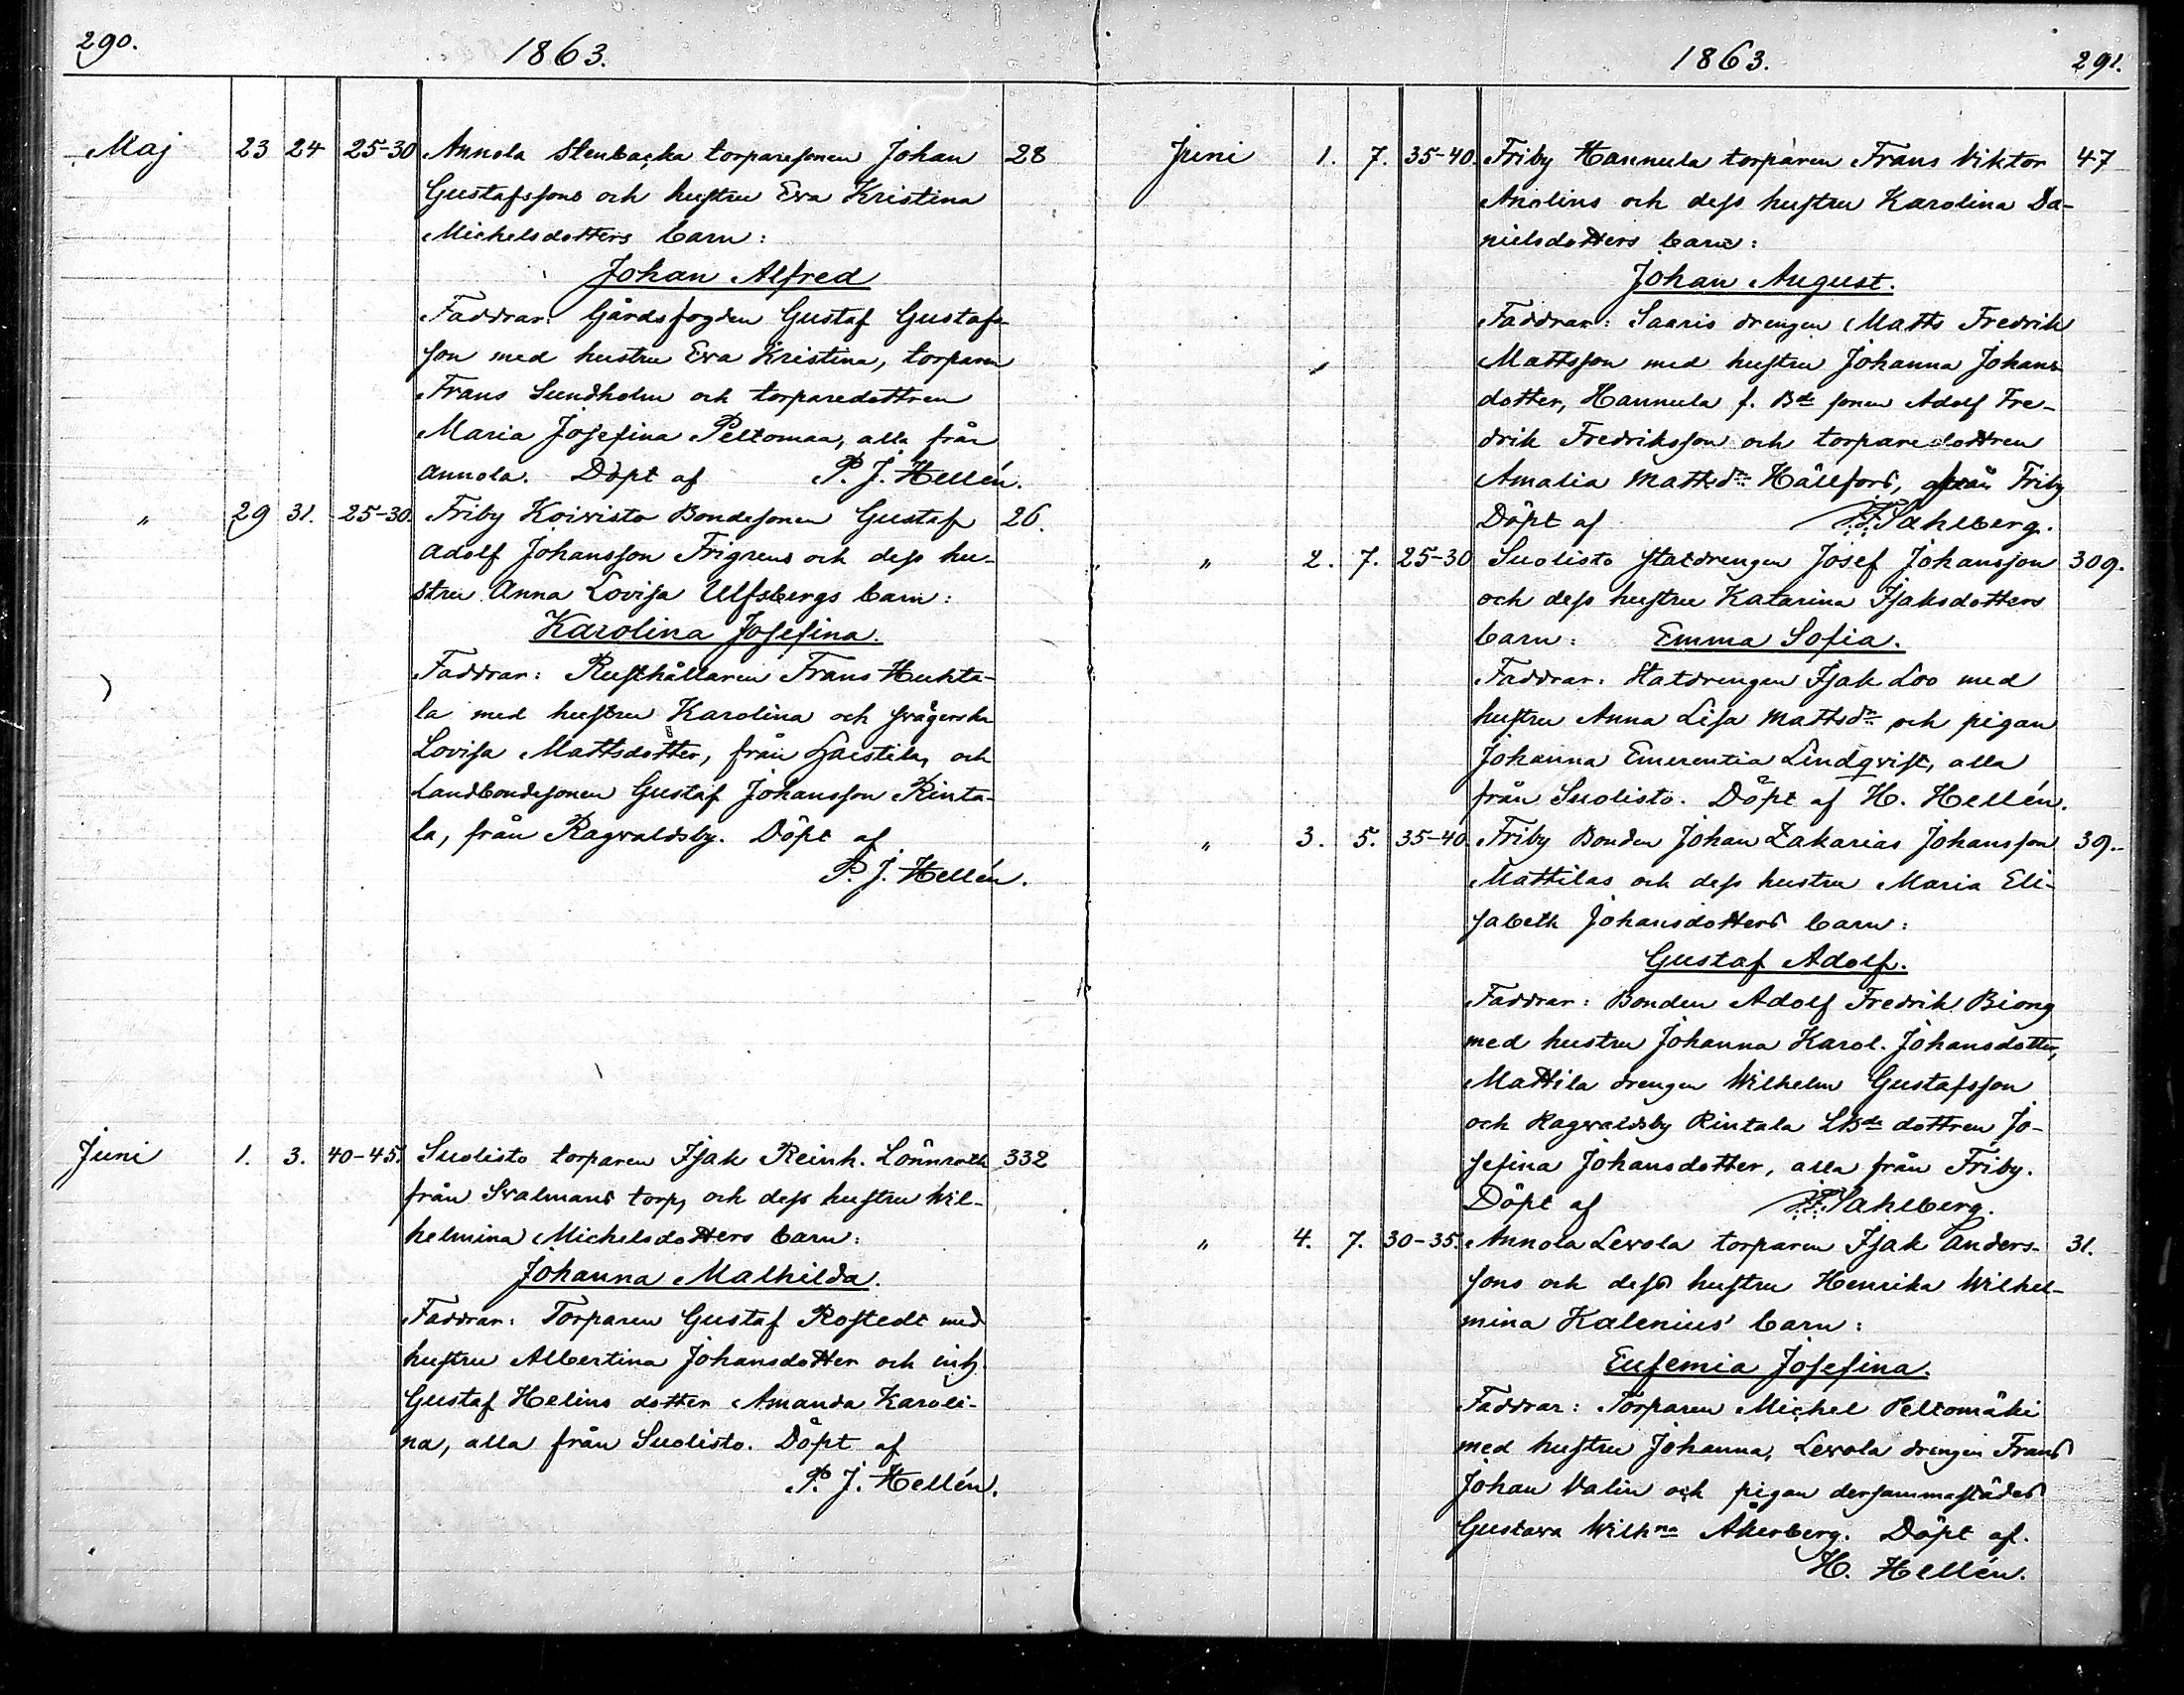 290.
1863.
Maj 23 24 25-30 Annola Stenbacka torparesonen Johan 28
Gustafssons och hustru Eva Kristina
Michelsdotters barn:
Johan Alfred
Faddrar: Gårdsfogden Gustaf Gustafs-
son med hustru Eva Kristina, torparen
Frans Sundholm och torparedottren
Maria Josefina Peltomaa, alla från
Annola. Döpt af P. J. Hellén.
" 29 31. 25-30. Friby Koivisto Bondesonen Gustaf 26.
Adolf Johansson Frigrens och dess hu-
stru Anna Lovisa Ulfsbergs barn:
Karolina Josefina.
Faddrar: Rusthållaren Frans Huhta-
la med hustru Karolina och svägerska
Lovisa Mattsdotter, från Haistila, och
Landbondesonen Gustaf Johansson Rinta-
la, från Ragvaldsby. Döpt af
P. J. Hellén.
Juni 1. 3. 40-45. Suolisto torparen Isak Reinh. Lönnroth 332
från Svalmans torp, och dess hustru Wil-
helmina Michelsdotters barn:
Johanna Mathilda.
Faddrar: Torparen Gustaf Rostedt med
hustru Albertina Johansdotter och inh.
Gustaf Helins dotter Amanda Karoli-
na, alla från Suolisto. Döpt af
P. J. Hellén.
1863.
291.
Juni 1. 7. 35-40. Friby Hannula torparen Frans Viktor 47
Anolins och dess hustru Karolina Da-
nielsdotters barn:
Johan August.
Faddrar: Saaris drengen Matts Fredrik
Mattsson med hustru Johanna Johans
dotter, Hannula f. Bde sonen Adolf Fre-
drik Fredriksson och torparedottren
Amalia Mattsdn Hällfors, från Friby
Döpt af F. F. Sahlberg.
" 2. 7. 25-30 Suolisto statdrengen Josef Johansson 309.
och dess hustru Katarina Isaksdotters
barn: Emma Sofia.
Faddrar: Statdrengen Isak Loo med
hustru Anna Lisa Mattsdn och pigan
Johanna Emerentia Lindqvist, alla
från Suolisto. Döpt af H. Hellén.
" 3. 5. 35-40 Friby Bonden Johan Zakarias Johansson 39.
Mattilas och dess hustru Maria Eli-
sabeth Johansdotters barn:
Gustaf Adolf.
Faddrar: Bonden Adolf Fredrik Biong
med hustru Johanna Karol. Johansdotter,
Mattila drengen Wilhelm Gustafsson
och Ragvaldsby Rintala LBde dottren Jo-
sefina Johansdotter, alla från Friby.
Döpt af F. F. Sahlberg.
" 4. 7. 30-35. Annola Levola torparen Isak Anders- 31.
sons och dess hustru Henrika Wilhel-
mina Kalenius' barn:
Eufemia Josefina.
Faddrar: Torparen Michel Peltomäki
med hustru Johanna, Levola drengen Frans
Johan Valin och pigan dersammastädes
Gustava Wilhna Åkerberg. Döpt af.
H. Hellén.